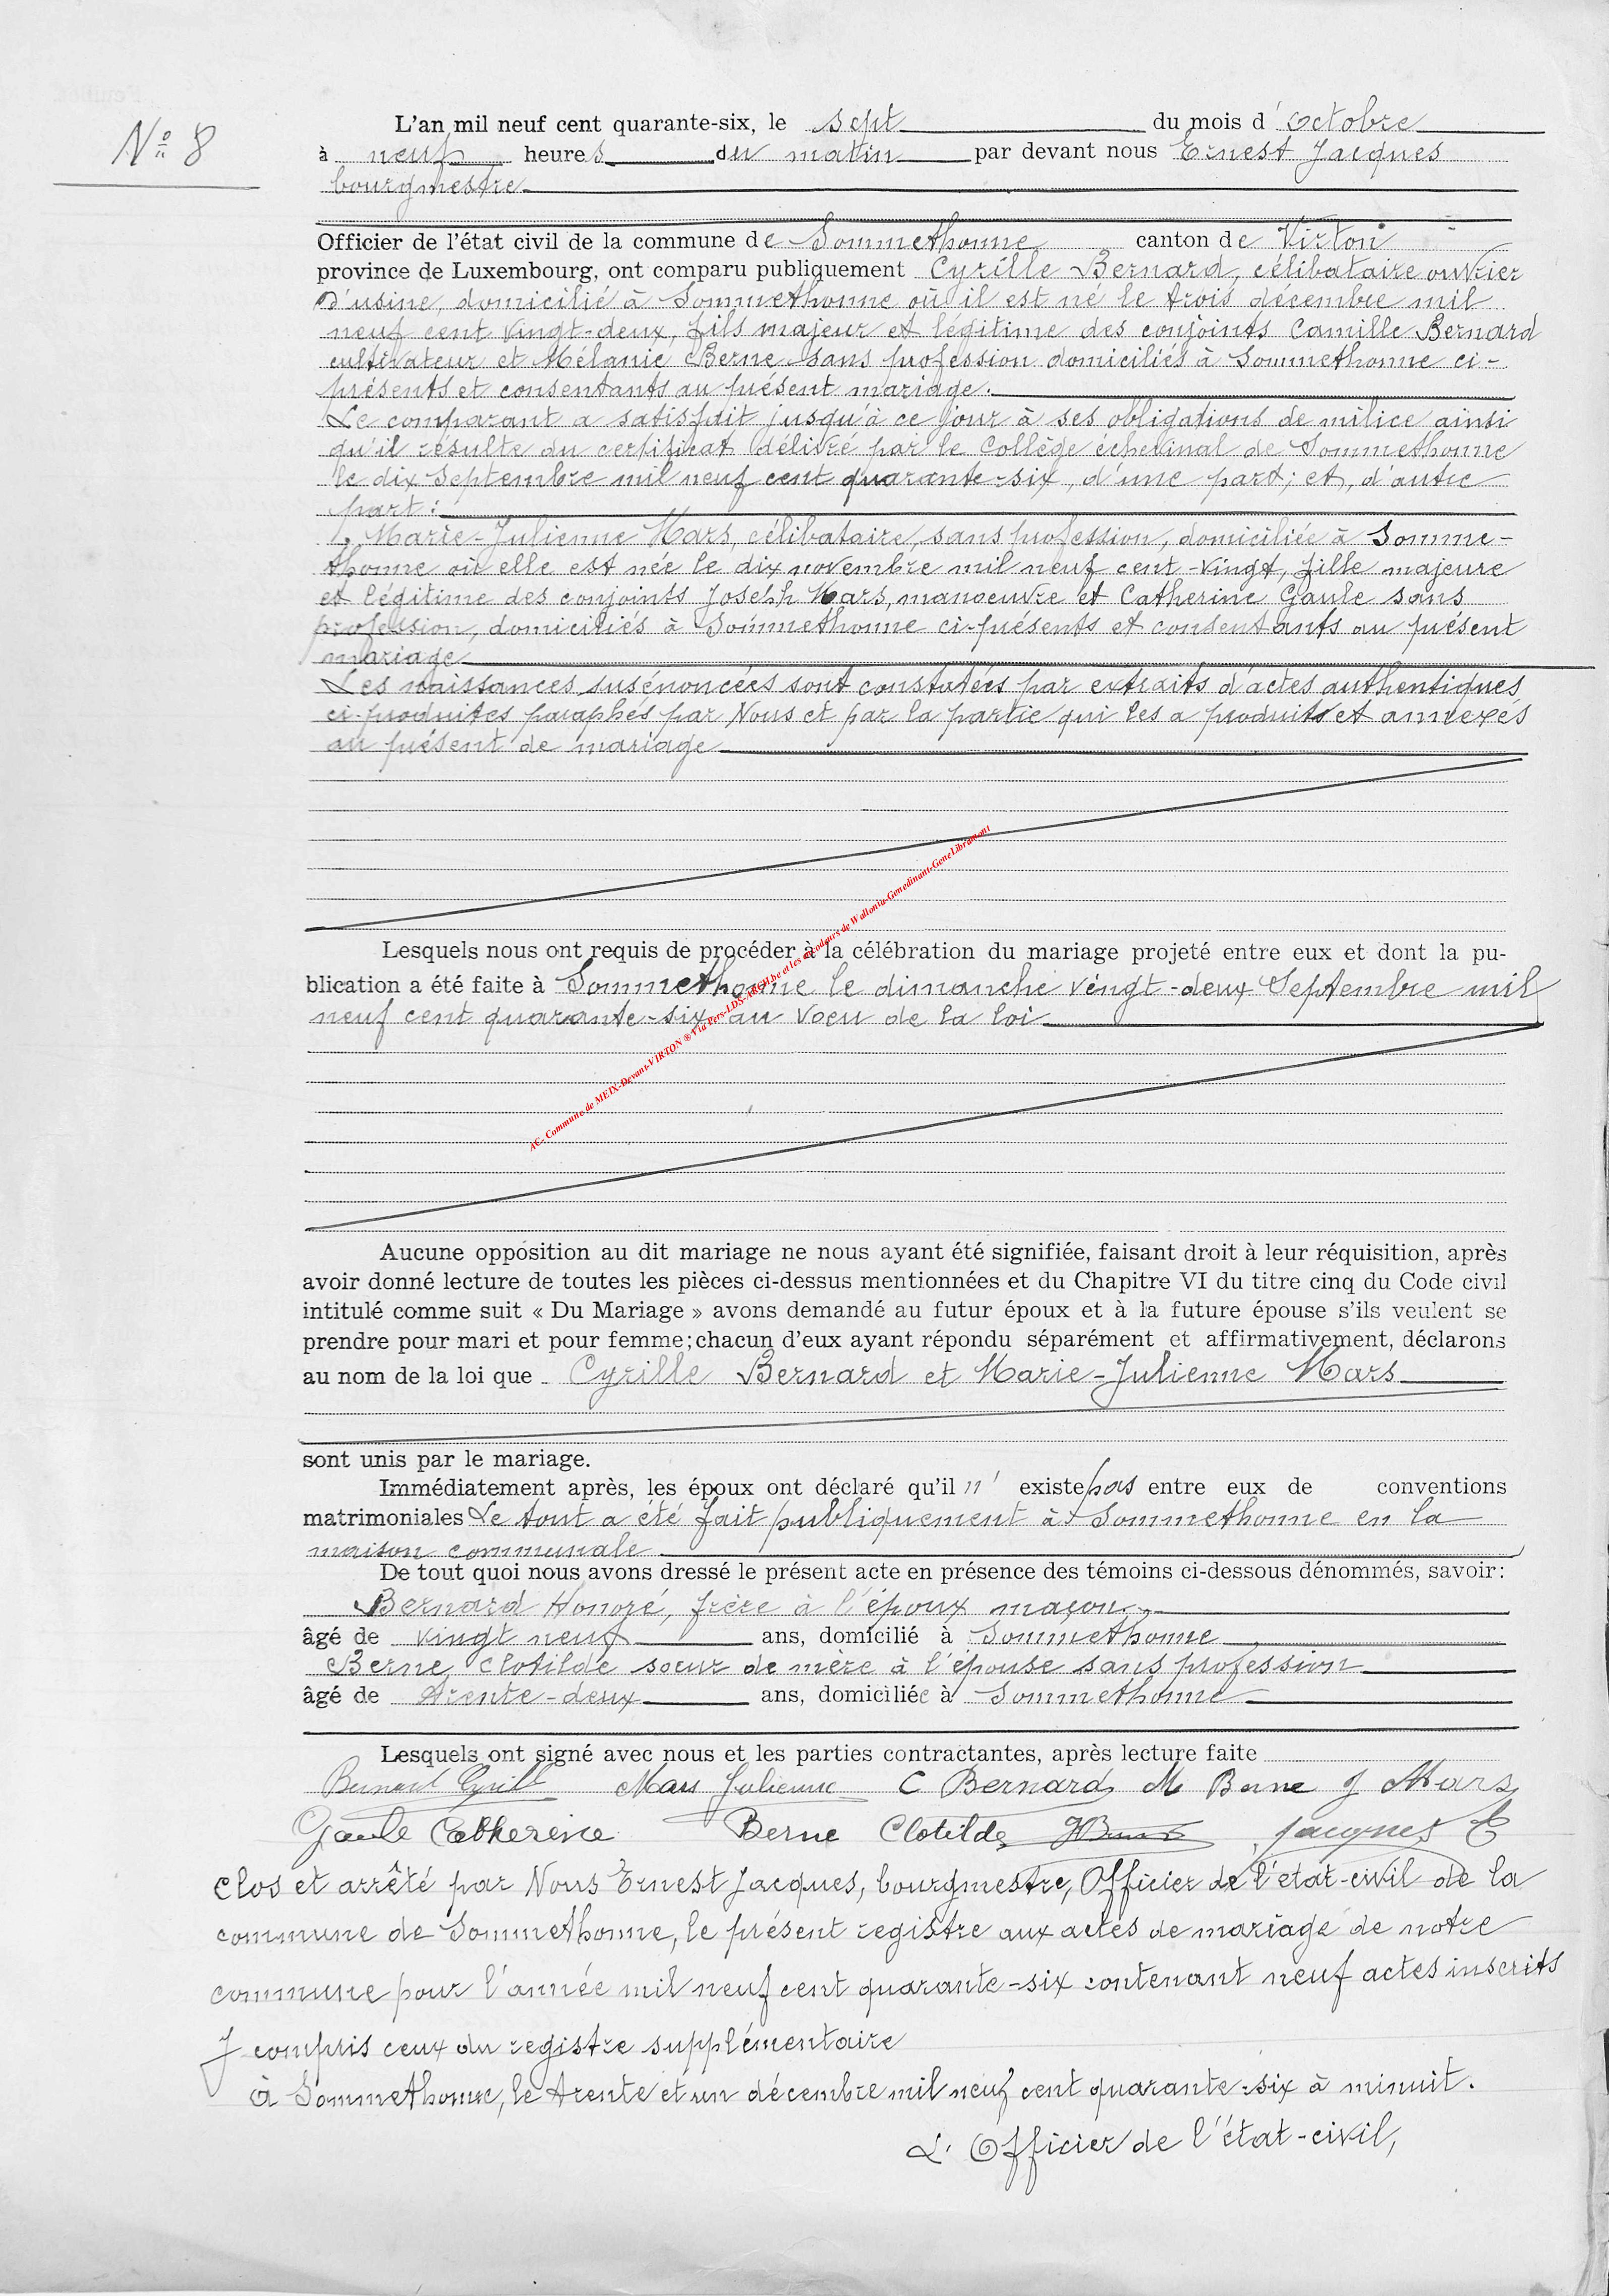 N° 8
L'an mil neuf cent quarante-six, le sept du mois d'octobre
à neuf heures du matin par devant nous Ernest Jacques
bourgmestre
Officier de l'état civil de la commune de Sommethonne canton de Virton
province de Luxembourg, ont comparu publiquement Cyrille Bernard, célibataire ouvrier
d'usine, domicilié à Sommethonne où il est né le trois décembre mil
neuf cent vingt-deux, fils majeur et légitime des conjoints Camille Bernard
cultivateur et Mélanie Berne sans profession domiciliés à Sommethonne ci-
présents et consentants au présent mariage.
Le comparant a satisfait jusqu'à ce jour à ses obligations de milice ainsi
qu'il résulte du certificat délivré par le Collège échevinal de Sommethonne
le dix septembre mil neuf cent quarante-six, d'une part; et, d'autre
part:
Marie-Julienne Mars, célibataire, sans profession, domiciliée à Somme-
thonne où elle est née le dix novembre mil neuf cent-vingt, fille majeure
et légitime des conjoints Joseph Mars, manoeuvre et Catherine Gaule sans
profession, domiciliés à Sommethonne ci-présents et consentants au présent
mariage
Les naissances susénoncées sont constatées par extraits d'actes authentiques
ci-produites paraphés par Nous et par la partie qui les a produits et annexés
au présent de mariage
Lesquels nous ont requis de procéder à la célébration du mariage projeté entre eux et dont la pu-
blication a été faite à Sommethonne le dimanche vingt-deux Septembre mil
neuf cent quarante-six au voeu de la loi
AC- Commune de MEIX-Devant-VIRTON ® Via Pers-LDS-ARCH.be et les décodeurs de Wallonia-Genedinant-GeneLibramont
Aucune opposition au dit mariage ne nous ayant été signifiée, faisant droit à leur réquisition, après
avoir donné lecture de toutes les pièces ci-dessus mentionnées et du Chapitre VI du titre cinq du Code civil
intitulé comme suit « Du Mariage » avons demandé au futur époux et à la future épouse s'ils veulent se
prendre pour mari et pour femme; chacun d'eux ayant répondu séparément et affirmativement, déclarons
au nom de la loi que Cyrille Bernard et Marie-Julienne Mars
sont unis par le mariage.
Immédiatement après, les époux ont déclaré qu'il n' existe pas entre eux de conventions
matrimoniales Le tout a été fait publiquement à Sommethonne en la
maison communale
De tout quoi nous avons dressé le présent acte en présence des témoins ci-dessous dénommés, savoir:
Bernard Honoré, frère à l'époux maçon
âgé de vingt neuf ans, domicilié à Sommethonne
Berne, Clotilde soeur de mère à l'épouse sans profession
âgé de trente-deux ans, domiciliée à Sommethonne
Lesquels ont signé avec nous et les parties contractantes, après lecture faite
Bernard Cyrille Mars Julienne C Bernard M Berne J Mars
Gaule Catherine Berne Clotilde Jacques E
Clos et arrêté par Nous Ernest Jacques, bourgmestre, Officier de l'état-civil de la
commune de Sommethonne, le présent registre aux actes de mariage de notre
commune pour l'année mil neuf cent quarante-six contenant neuf actes inscrits
y compris ceux du registre supplémentaire
à Sommethonne, le trente et un décembre mil neuf cent quarante-six à minuit.
L'Officier de l'état-civil,